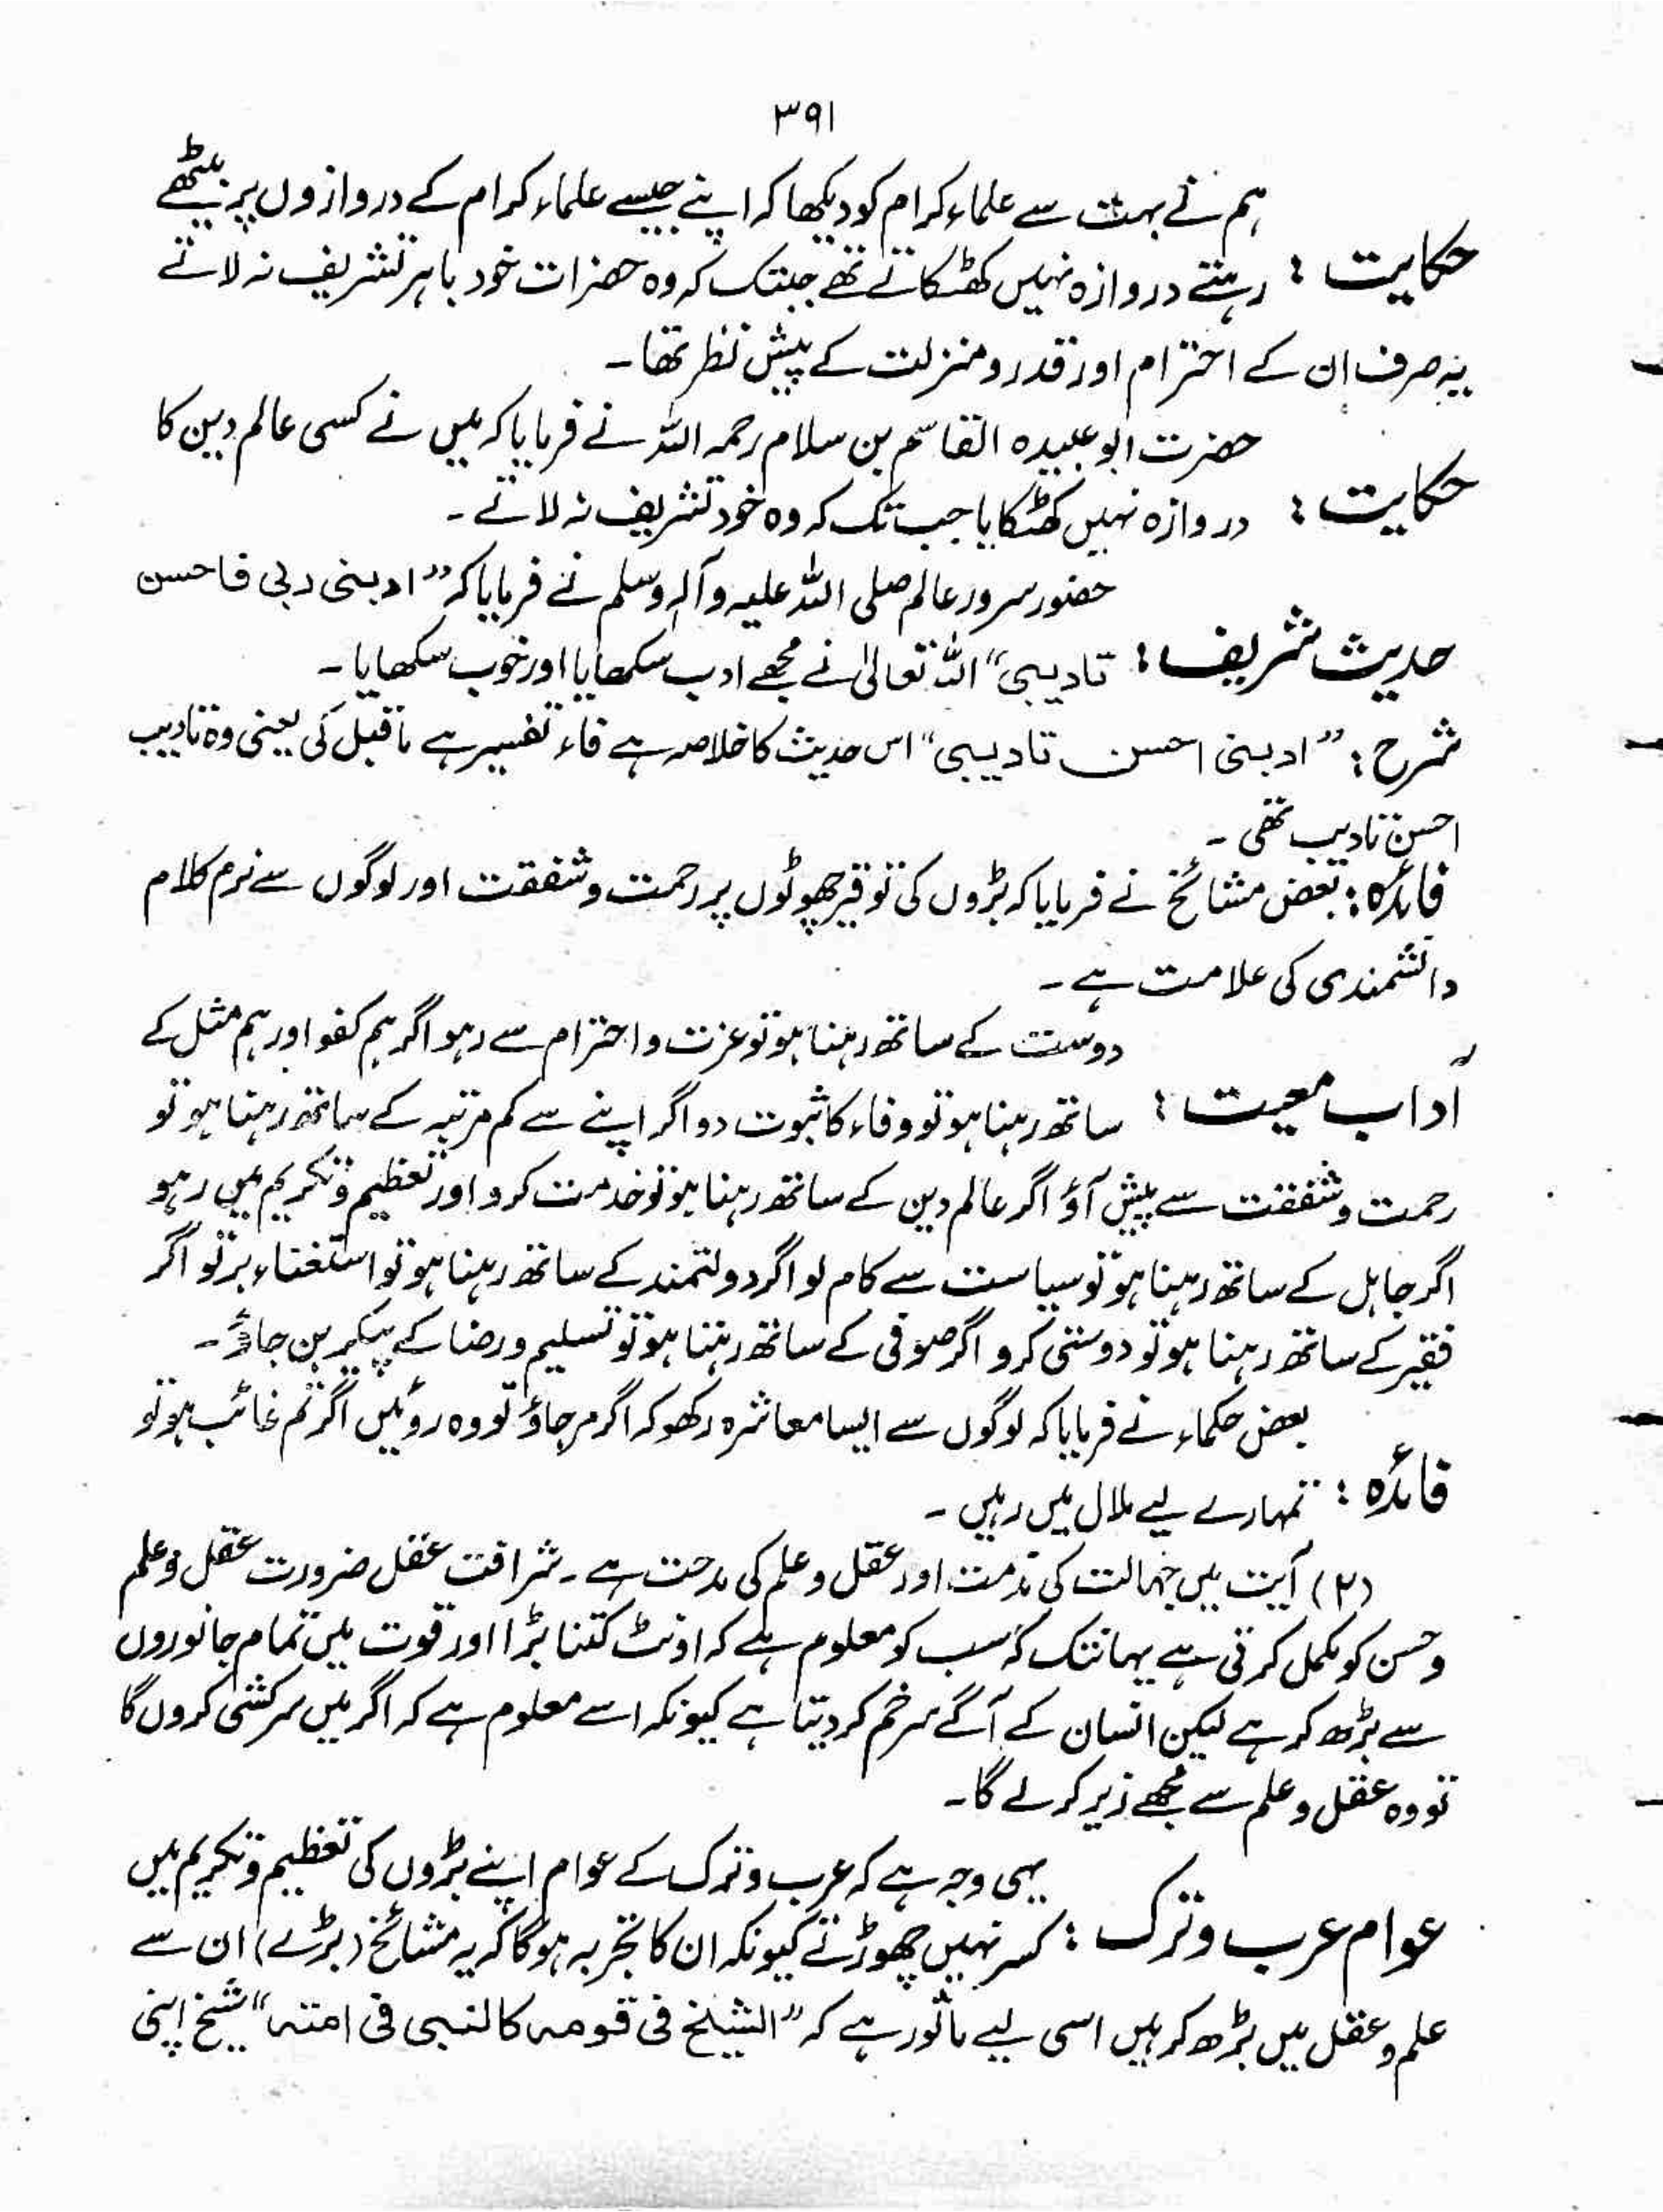 ۳۹۱
ہم نے بہت سے علماء کرام کو دیکھا کہ اپنے جیسے علماء کرام کے دروازوں پر بیٹھے
حکایت : رہتے دروازہ نہیں کھٹکاتے تھے جبتک کہ وہ حضرات خود باہر تشریف نہ لاتے
یہ صرف ان کے احترام اور قدر و منزلت کے پیش نظر تھا۔
حضرت ابو عبیدہ القاسم بن سلام رحمہ اللہ نے فرمایا کہ میں نے کسی عالم دین کا
حکایت : دروازہ نہیں کھٹکایا جب تک کہ وہ خود تشریف نہ لاتے۔
حضور سرور عالم صلی اللہ علیہ وآلہ وسلم نے فرمایا کہ ”ادبنی ربی فاحسن
حدیث شریف : تادیبی“ اللہ تعالیٰ نے مجھے ادب سکھایا اور خوب سکھایا۔
شرح : ”ادبنی احسن تادیبی“ اس حدیث کا خلاصہ ہے فاء تفسیر ہے ماقبل کی یعنی وہ تادیب
احسن تادیب تھی۔
فائدہ : بعض مشائخ نے فرمایا کہ بڑوں کی توقیر چھوٹوں پر رحمت و شفقت اور لوگوں سے نرم کلام
دانشمندی کی علامت ہے۔
دوست کے ساتھ رہنا ہو تو عزت و احترام سے رہو اگر ہم کفو اور ہم مثل کے
آداب معیت : ساتھ رہنا ہو تو وفاء کا ثبوت دو اگر اپنے سے کم مرتبہ کے ساتھ رہنا ہو تو
رحمت و شفقت سے پیش آؤ اگر عالم دین کے ساتھ رہنا ہو تو خدمت کرو اور تعظیم و تکریم میں رہو
اگر جاہل کے ساتھ رہنا ہو تو سیاست سے کام لو اگر دولتمند کے ساتھ رہنا ہو تو استغناء برتو اگر
فقیر کے ساتھ رہنا ہو تو دوستی کرو اگر صوفی کے ساتھ رہنا ہو تو تسلیم و رضا کے پیکر بن جاؤ۔
بعض حکماء نے فرمایا کہ لوگوں سے ایسا معاشرہ رکھو کہ اگر مر جاؤ تو وہ روئیں اگر تم غائب ہو تو
فائدہ : تمہارے لیے ملال میں رہیں۔
(۲) آیت میں جہالت کی مذمت اور عقل و علم کی مدحت ہے۔ شرافت عقل ضرورت عقل و علم
و حسن کو مکمل کرتی ہے یہانتک کہ سب کو معلوم ہے کہ اونٹ کتنا بڑا اور قوت میں تمام جانوروں
سے بڑھ کر ہے لیکن انسان کے آگے سر خم کر دیتا ہے کیونکہ اسے معلوم ہے کہ اگر میں سرکشی کروں گا
تو وہ عقل و علم سے مجھے زیر کر لے گا۔
یہی وجہ ہے کہ عرب و ترک کے عوام اپنے بڑوں کی تعظیم و تکریم میں
عوام عرب و ترک : کسر نہیں چھوڑتے کیونکہ ان کا تجربہ ہوگا کہ یہ مشائخ (بڑے) ان سے
علم و عقل میں بڑھ کر ہیں اسی لیے ماثور ہے کہ ”الشیخ فی قومہ کالنبی فی امتہ“ شیخ اپنی